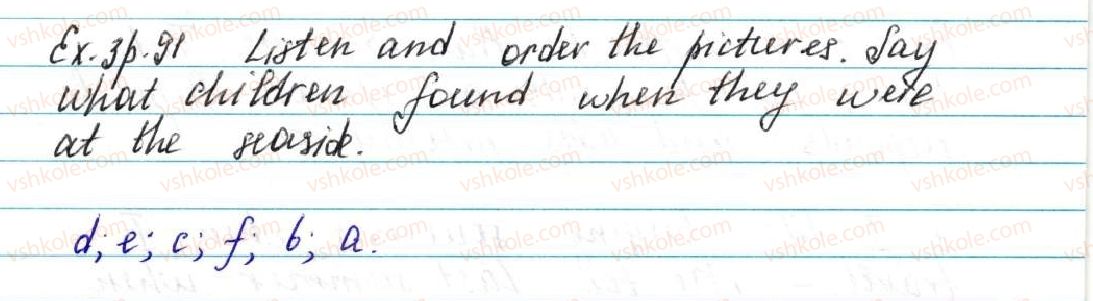 Ex. 3p. 91 Listen and order the pictures. Say
what children found when they were
at the seaside.
d; e; c; f; b; a.